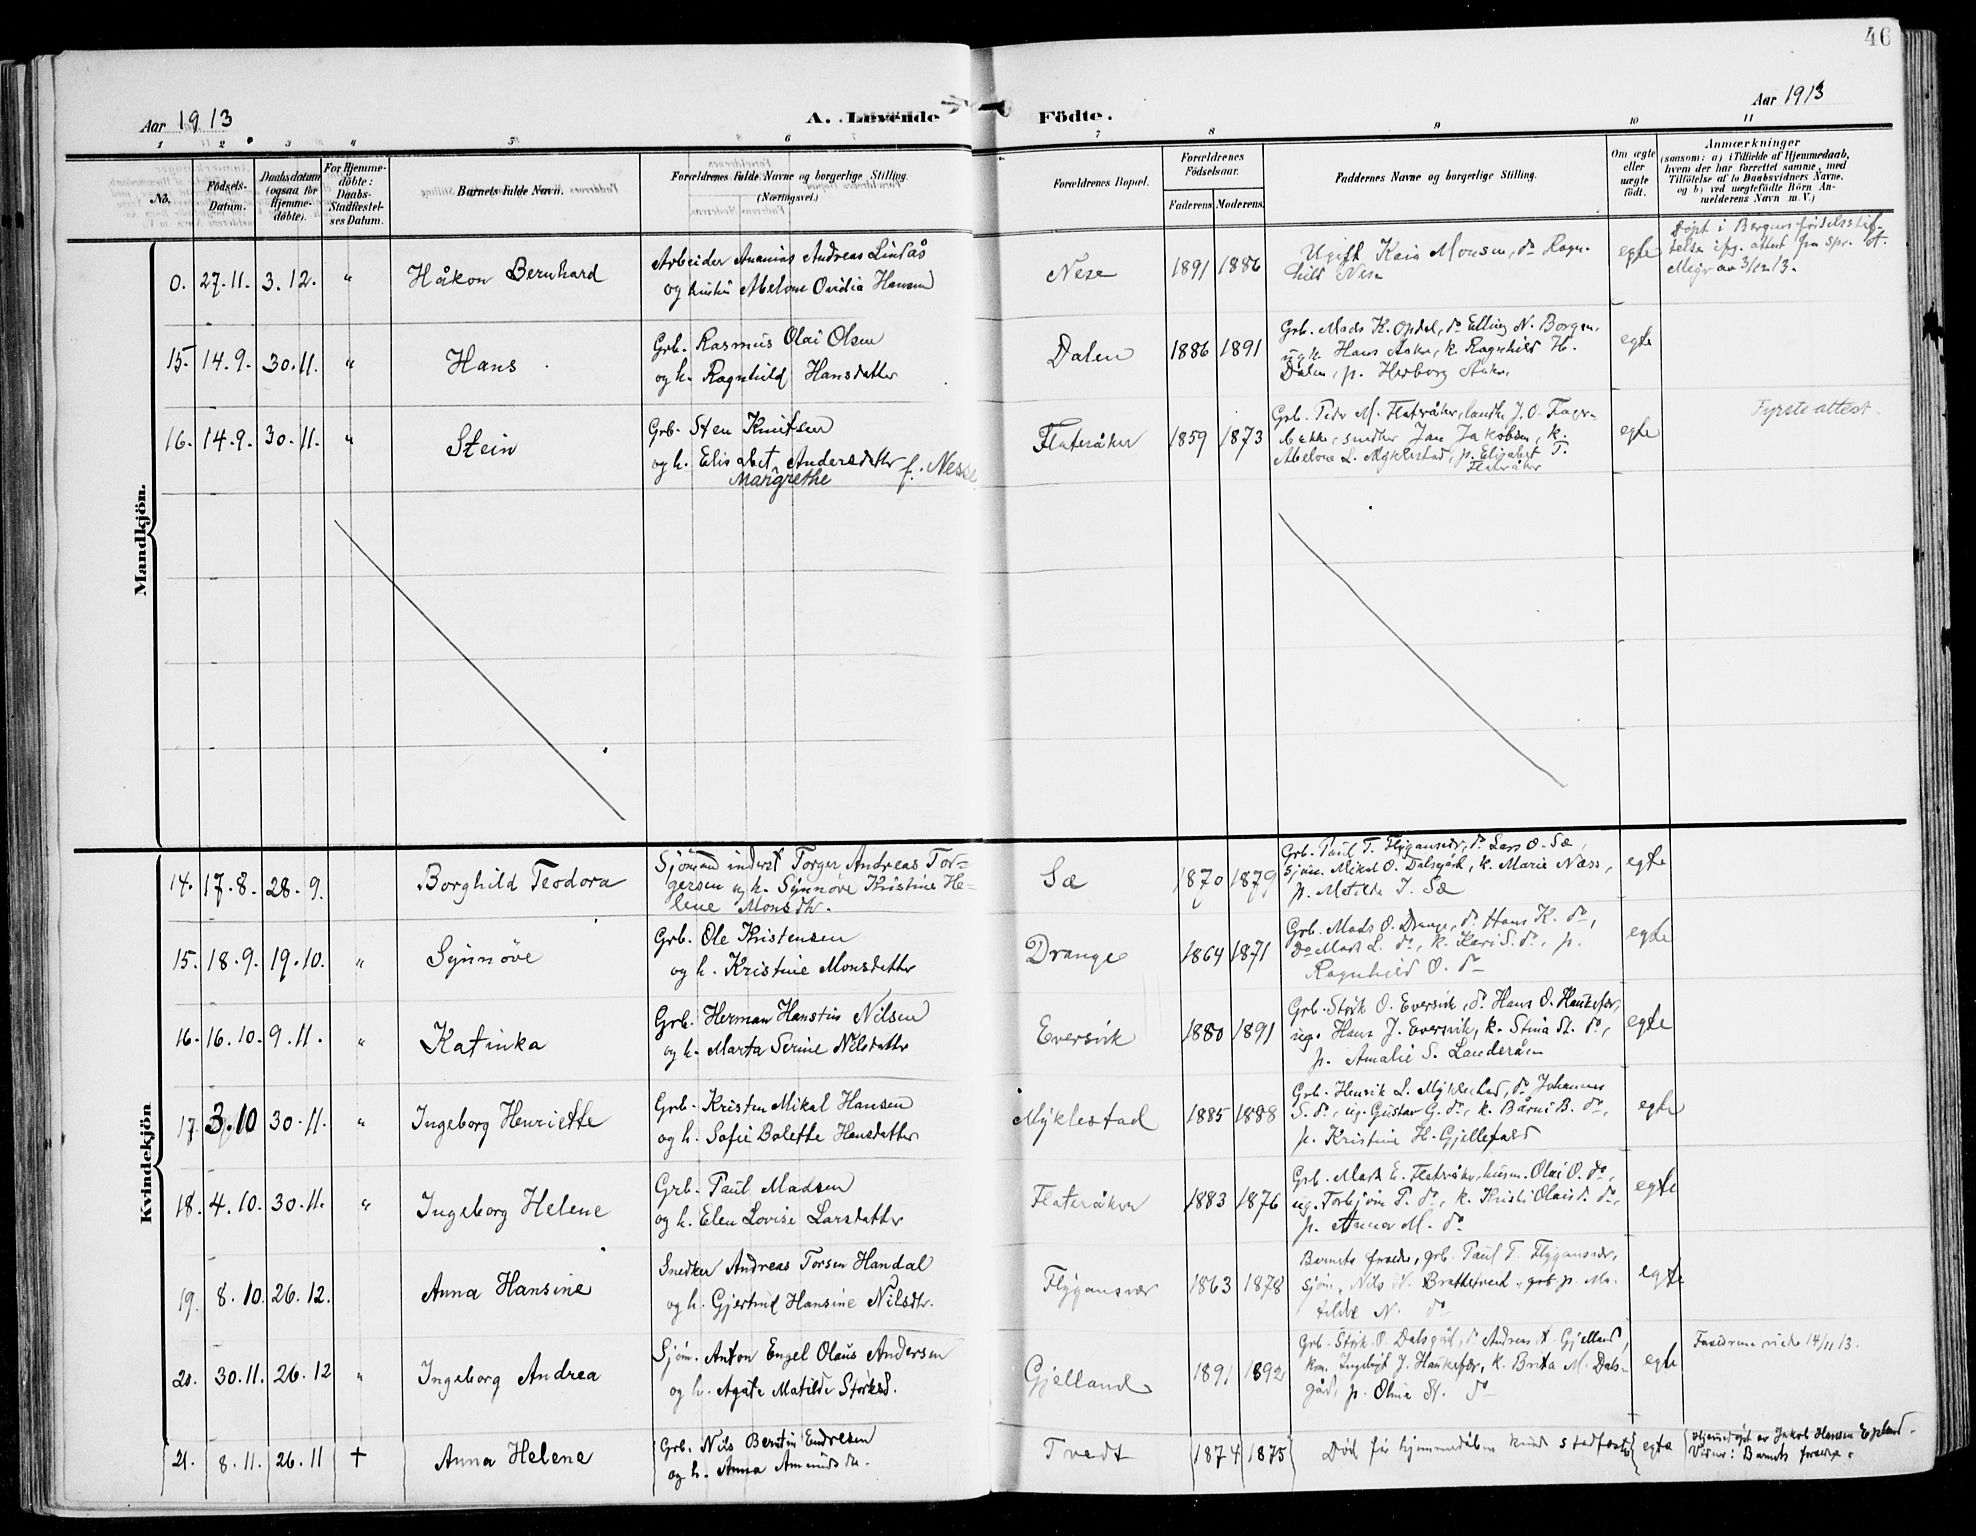 46
Aar 1913
A. Levende
Födte.
Aar 1913
1 2 3 4 5 6 7 8 9 10 11
No.
Födsels-
Datum.
Daabsdatum
(ogsaa for
Hjemme-
döbte).
For Hjemme-
döbte:
Daabs-
Stadfæstel-
ses Datum.
Barnets fulde Navn.
Forældrenes fulde Navne og borgerlige Stilling.
(Næringsvei.)
Forældrenes Bopæl.
Forældrenes
Födselsaar.
Faderens. Moderens.
Faddernes Navne og borgerlige Stilling.
Om ægte
eller
uægte
født.
Anmærkninger
(saasom: a) i Tilfælde af Hjemmedaab,
hvem der har forrettet samme, med
Tilföielse af to Daabsvidners Navne,
og b) ved uægtefödte Börn An-
melderens Navn m. V.)
Mandkjön.
0. 27.11. 3.12. " Håkon Bernhard
Arbeider Ananias Andreas Lindås
og hustru Abelone Ovidia Hansen
Nese 1891 1886
Ugift Kaia Monsen, do Ragn-
hild Nese
egte
Döpt i Bergens födselsstif-
telse
15. 14.9. 30.11. " Hans
Grb. Rasmus Olai Olsen
og h. Ragnhild Hansdatter
Dalen 1886 1891
Grb. Mads K. Opdal, do Elling N. Borgen,
ugk. Hans Aaker, k. Ragnhild H.
Dalen, p. Herborg
egte
16. 14.9. 30.11. " Stein
Grb. Sten Knutsen
og h. Elisabet Andersdatter f. Nesse
Margrethe
Flateråker 1859 1873
Grb. Peder M. Flateråker, landh. J. O. Fager-
bakke, snedker Jan Jakobsen, k.
Abelone L. Myklestad, p. Elisabet T.
Flateråker
egte
Fyrste attest.
Kvindekjön
14. 17.8. 28.9. Borghild Teodora
Sjömand inderst Torger Andreas Tor-
gersen og h. Synnöve Kristine He-
lene Monsdtr.
Sæ 1870 1879
Grb. Paul T. Flygansvær, do Lars O. Sæ,
Sjöm. Mikal O. Dalsgård, k. Marie Næss,
p. Matilde J. Sæ
egte
15. 18.9. 19.10. " Synnöve
Grb. Ole Kristensen
og h. Kristine Monsdatter
Drange 1864 1871
Grb. Mads O. Drange, do Hans K. do,
Do Mads L. do, k. Kari S. do, p.
Ragnhild O. do
egte
16. 16.10. 9.11. " Katinka
Grb. Herman Hanstin Nilsen
og h. Marta Serine Nilsdatter
Eversvik 1880 1891
Grb. Störk O. Eversvik, do Hans O. Haukefær,
ug. Hans J. Eversvik, k. Stina St. do,
p. Amalie S. Landeråen
egte
17. 3.10 30.11. " Ingeborg Henriette
Grb. Kristen Mikal Hansen
og h. Sofie Bolette Hansdatter
Myklestad 1885 1888
Grb. Henrik L. Myklestad, do Johannes
S. do, ug. Gustav G. do, k. Bårni B. do,
p. Kristine H. Gjellefald
egte
18. 4.10. 30.11. " Ingeborg Helene
Grb. Paul Madsen
og h. Elen Lovise Larsdatter
Flateråker 1883 1876
Grb. Mads E. Flateråker, husm. Olai O. do,
ug. Torbjörn P. do, k. Kristi Olaisd. do,
p. Anna M. do
egte
19. 8.10. 26.12. Anna Hansine
Snedker Andreas Torsen Handal
og h. Gjertrud Hansine Nilsdtr.
Flygansvær 1863 1878
Barnets fader, grb. Paul T. Flygansvær,
sjöm. Nils N. Brattetveid, grb. p. Ma-
tilde N. do
egte
20. 30.11. 26.12 " Ingeborg Andrea
Sjöm. Anton Engel Olaus Andersen
og h. Agate Matilde Storksd.
Gjelland 1891 1892
Grb. Störk O. Dalsgård, do Andreas A. Gjelland,
krm. Ingebrigt J. Haukefær, k. Brita M. Dals-
gård, p. Olina St. do
egte
Foreldrene viede 14/11 13.
21. 8.11. 26.11 † Anna Helene
Grb. Nils Berntin Endresen
og h. Anna Amundsdtr.
Tvedt 1874 1875
Död för hjemmedåben kunde stadfestes
egte
Hjemmedöpt av Jakob Hansen Epland.
Vidner: Barnets foreldre.